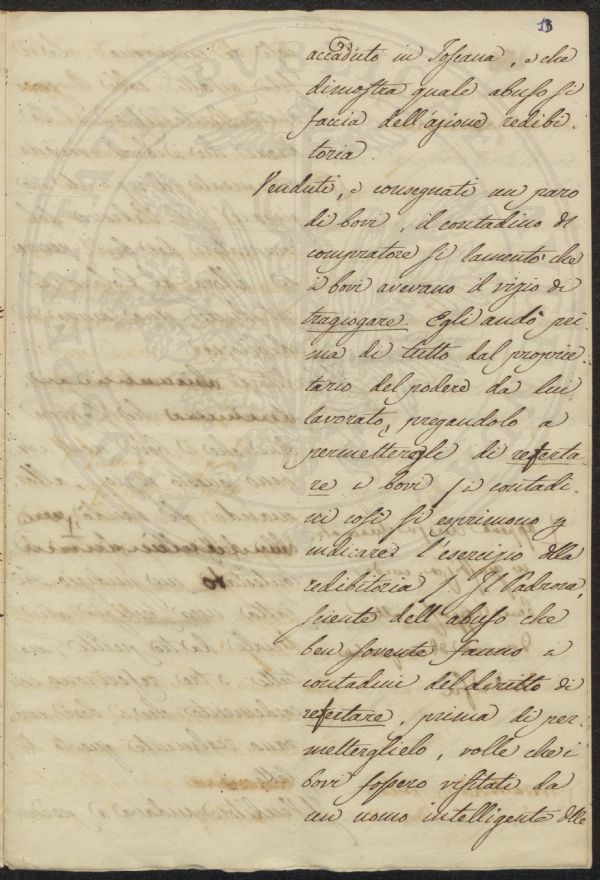 13
accaduto in Toscana, e che
dimostra quale abuso si
faccia dell'azione redibi-
toria.
Venduti, e consegnati un paro
di bovi, il contadino del
compratore si lamentò che
i bovi avevano il vizio di
tragiogare. Egli andò pri-
ma di tutto dal proprie-
tario del podere da lui
lavorato, pregandolo a
permettergli di referta-
re i bovi / i contadi-
ni così si esprimono p
indicare l'esercizio della
redibitoria / Il Padrone,
sciente dell'abuso che
ben sovente fanno i
contadini del diritto di
refertare, prima di per-
metterglielo, volle che i
bovi fossero visitati da
un uomo intelligente delle